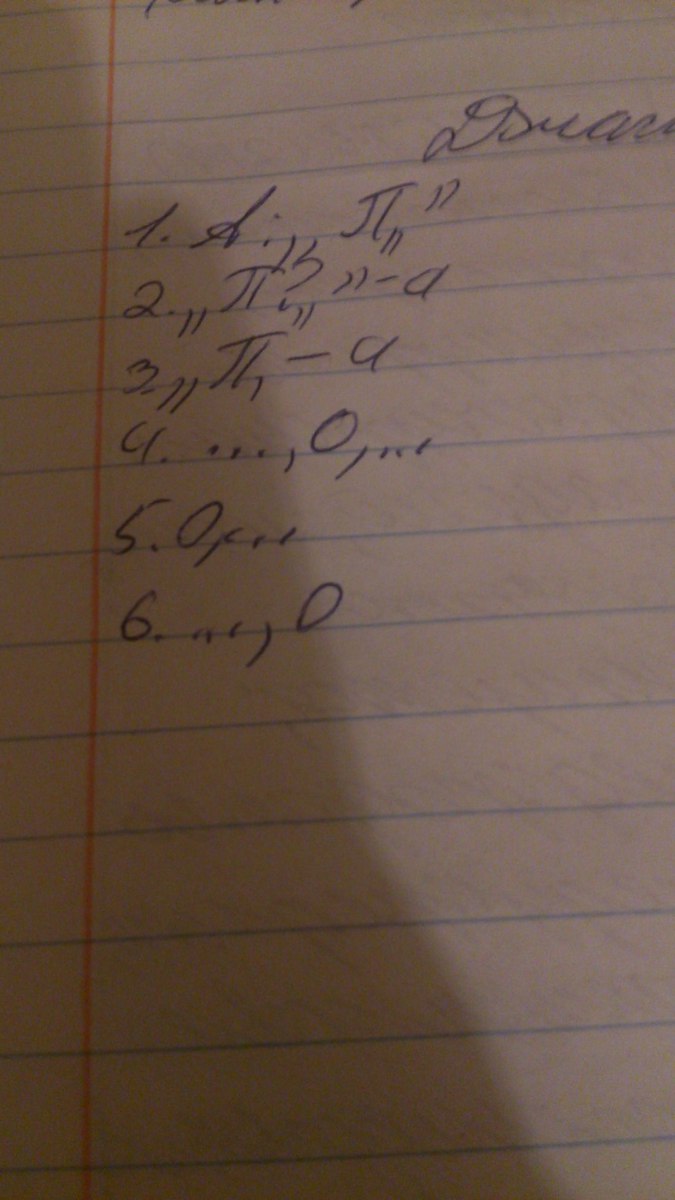 1. А: „П„”
2. „П?„” – а
3. „П, – а
4. ..., О, ...
5. О, ...
6. ..., О